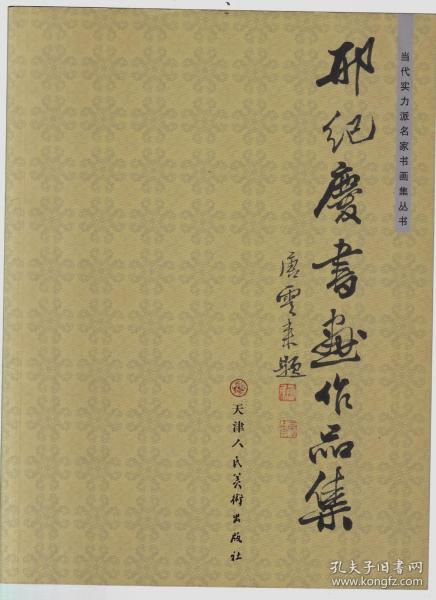 当代实力派名家书画集丛书
邢纪慶書畫作品集
唐雲来題
天津人民美術出版社
孔夫子旧书网
www.kongfz.com